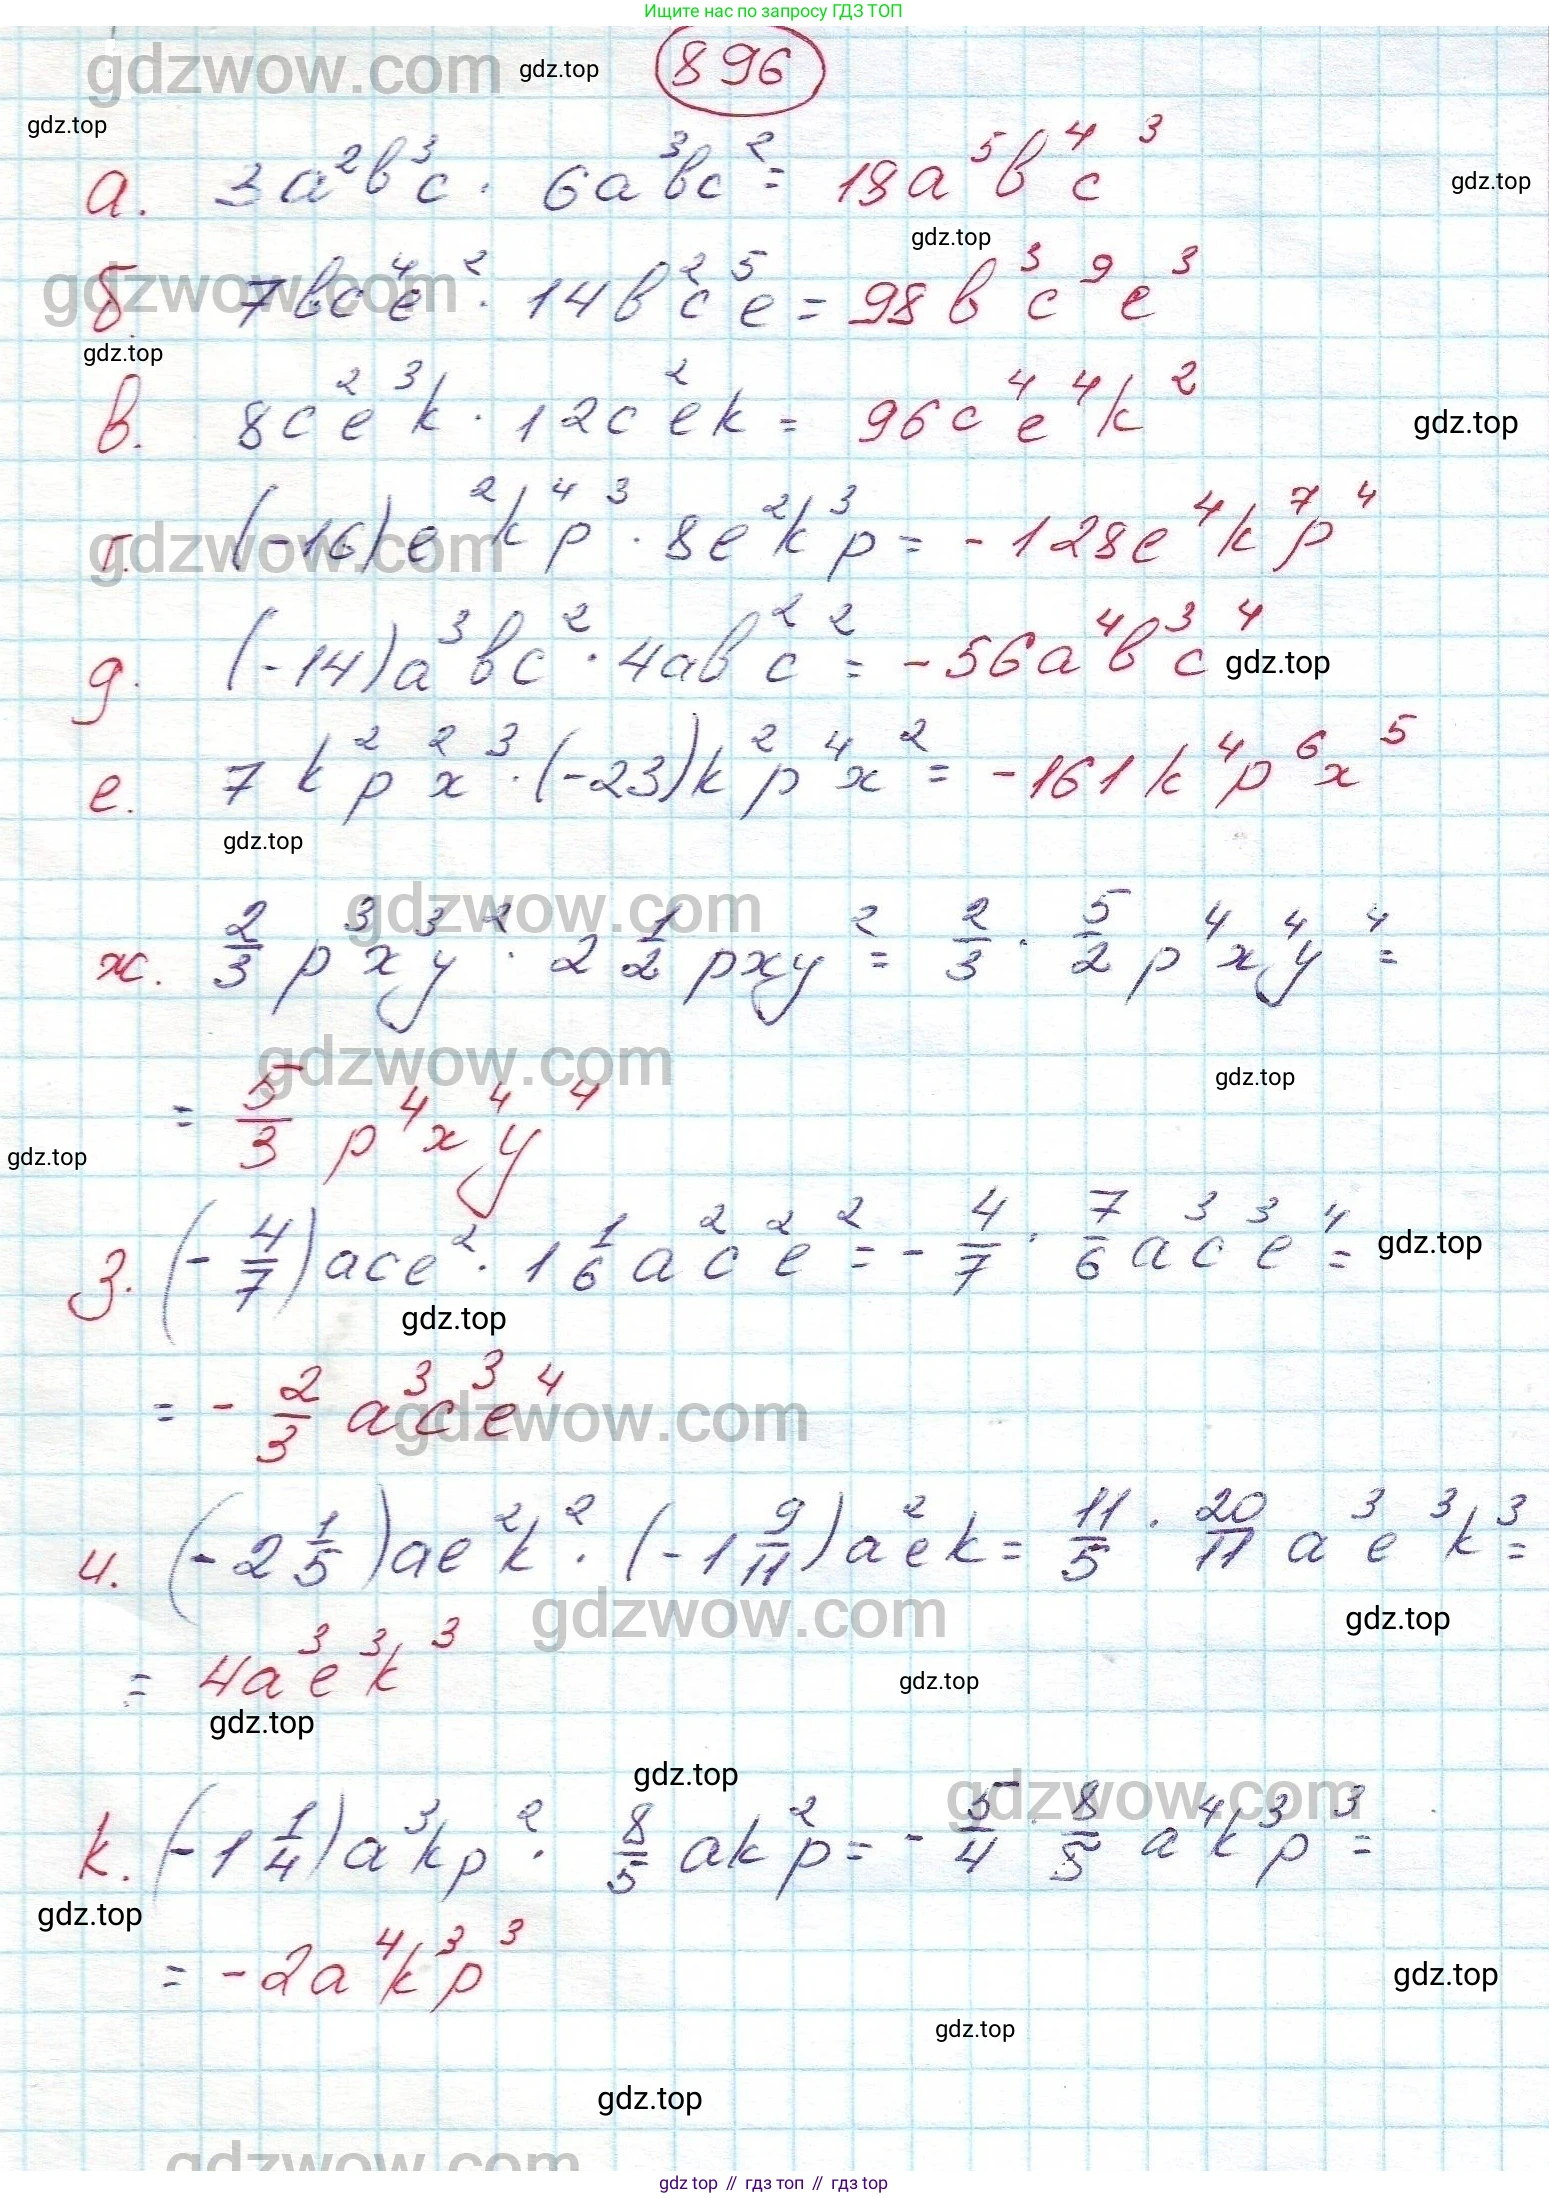 Ищите нас по запросу ГДЗ ТОП
gdzwow.com gdz.top 896
gdz.top
а. 3a²b³c · 6a³bc² = 18a⁵b⁴c³
gdz.top
gdz.top
gdzwow.com
б. 7bc⁴e² · 14b²c⁵e = 98b³c⁹e³
gdz.top
в. 8c²e³k · 12c²ek = 96c⁴e⁴k²
gdz.top
gdzwow.com
г. (-16)e²k⁴p³ · 8e²k³p = -128e⁴k⁷p⁴
д. (-14)a³bc² · 4ab²c² = -56a⁴b³c⁴
gdz.top
е. 7k²p²x³ · (-23)k²p⁴x² = -161k⁴p⁶x⁵
gdz.top
gdzwow.com
ж. 2/3 p³x³y² · 2 1/2 pxy² = 2/3 · 5/2 p⁴x⁴y⁴ =
gdzwow.com
gdz.top
= 5/3 p⁴x⁴y⁴
gdz.top
з. (-4/7)ace² · 1 1/6 a²c²e² = -4/7 · 7/6 a³c³e⁴ =
gdz.top
gdz.top
= -2/3 a³c³e⁴
gdzwow.com
и. (-2 1/5)ae²k² · (-1 9/11)a²ek = 11/5 · 20/11 a³e³k³ =
gdzwow.com
gdz.top
= 4a³e³k³
gdz.top
gdz.top
gdz.top
gdzwow.com
к. (-1 1/4)a³kp² · 8/5 ak²p = -5/4 8/5 a⁴k³p³ =
gdz.top
= -2a⁴k³p³
gdz.top
gdz.top
gdz.top
gdzwow.com
gdz top // гдз топ // гдз top